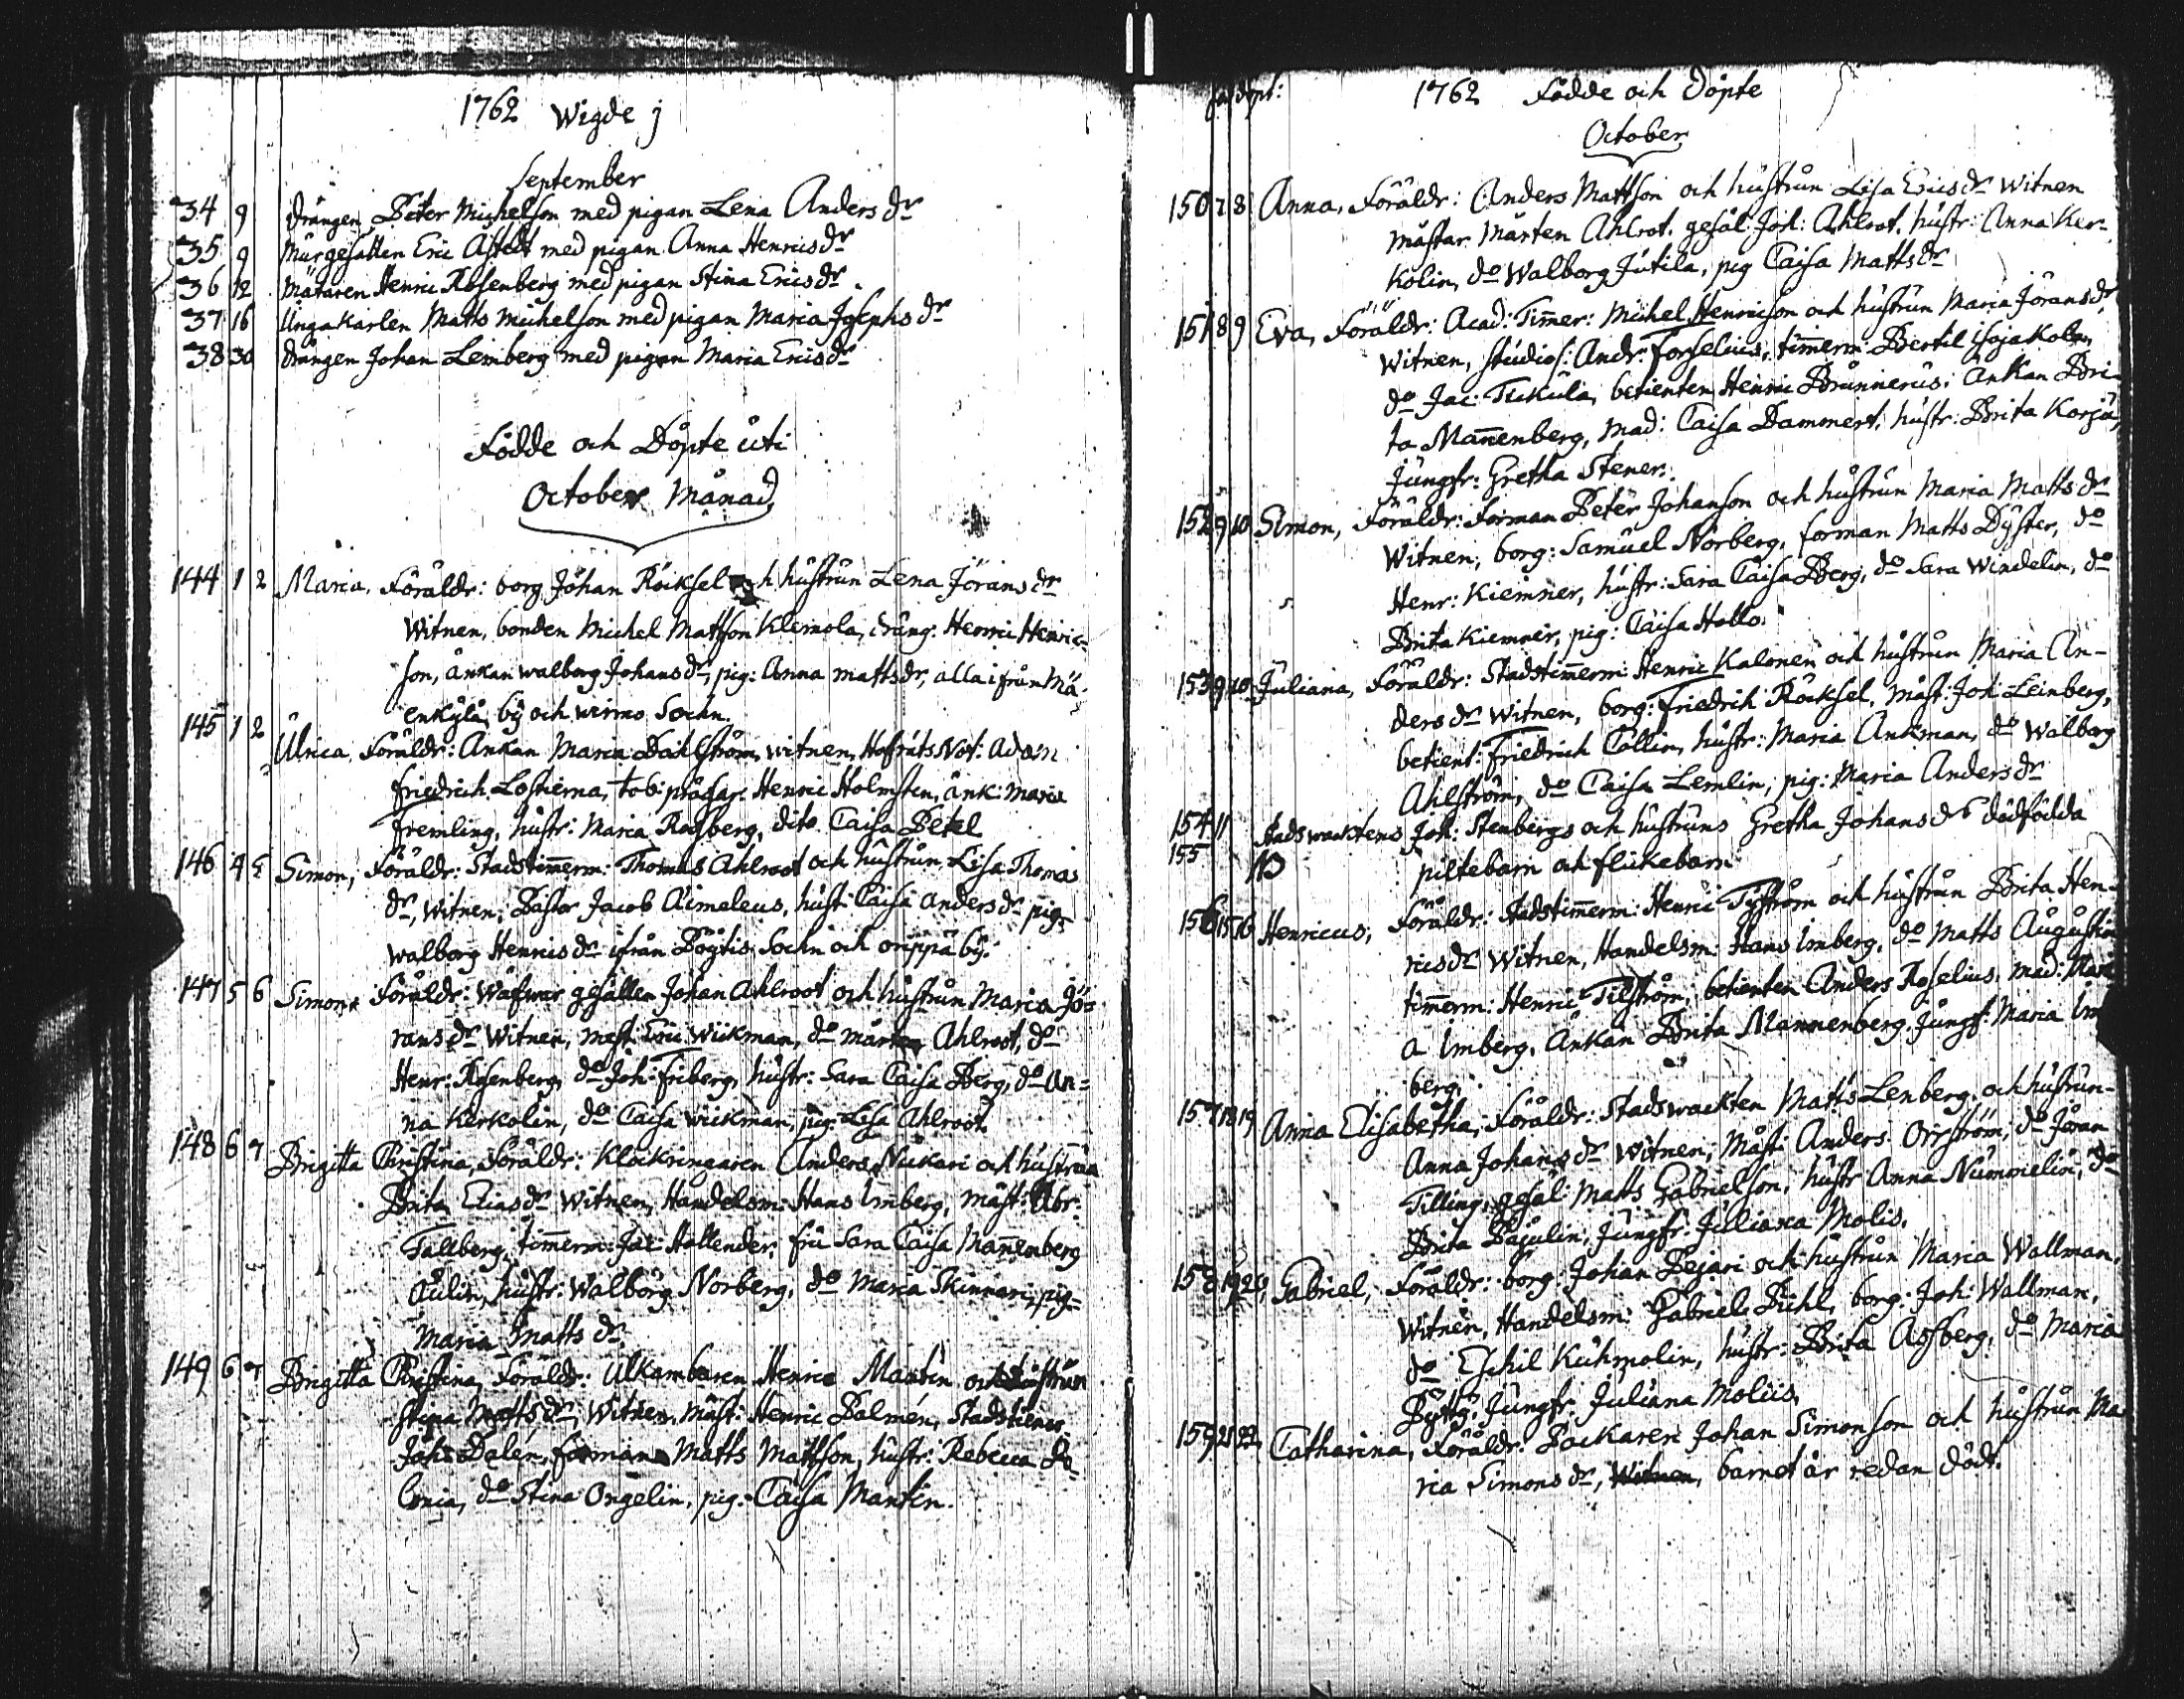 1762 Wigde j
September
34 9 drängen Peter Michelson med pigan Lena Anders dr
35 9 Murgesällen Eric Astedt med pigan Anna Henricsdr
36 12 Mätaren Henric Rosenberg med pigan Stina Ericsdr
37 16 Ungakarlen Matts Michelson med pigan Maria Josephs dr
38 30 drängen Johan Leinberg med pigan Maria Ericsdr
Födde och Döpte uti
October Månad
144 1 2 Maria, Föräldr: borg Johan Röcksel och hustrun Lena Jörans dr
Witnen, bonden Michel Mattson Klemola, dräng: Henric Henric=
son, änkan walborg Johansdr, pig: Anna matts dr, alla ifrån Mä
enkylä by och wirmo Sochn.
145 1 2 Ulrica, Föräldr: Änkan Maria Dahlström, witnen, Hofräts Not: Adam
Friedrich Lostierna, tob: Henric Holmsten, änk: Maria
Fremling, hustr: Maria Rosberg, dito Caisa Petel
146 4 5 Simon, Föräldr: Stadstimerm: Thomas Ahlroot och hustrun Lisa Thomas
dr, witnen, Pastor Jacob Aimeleus, hust: Caisa andersdr pig:
walborg Henricsdr ifrån Pöytis Sochn och orippä by.
147 5 6 Simon, Föräldr: gesällen Johan Ahlroot och hustrun Maria Jö=
rans dr Witnen, mest: Eric Wiikman, do mårten Ahlroot, do
Henr: Rosenberg, do Joh: Friberg, hustr: Sara Caisa Berg, do An=
na Kerkolin, do Caisa wiikman, pig: Lisa Ahlroot
148 6 7 Brigitta Christina, Föräldr: Klockringaren Anders Nukari och hustrun
Brita Eliasdr Witnen, Handelsm: Hans Imberg, mäst: Abr:
Tallberg, timerm: Jac: Hallender, fru Sara Caisa Manenberg
Aulin, hustr: Walborg Norberg, do Maria Skinnari, pig=
Maria Matts dr
149 6 7 Brigitta Christina, Föräldr: Ulkambaren Henric Mantin och hustrun
Stina Mattsdr, Witnen, mäst: Henric Palmén, Stadstienar
Joh: Dalén, forman Matts Mattson, hustr: Rebecca
do Stina Ongelin, pig: Caisa Mantin.
fö döpt: 1762 Födde och Döpte
October
150 7 8 Anna, Föräldr: Anders Mattson och hustrun Lisa Ericsdr Witnen
mästar Mårten Ahlrot, gesäl: Joh: Ahlrot, hustr: Anna Ker-
kolin, do Walborg Jutila, pig Caisa Mattsdr
151 8 9 Eva, Föräldr: Acad: Timer: Michel Henricson och hustrun Maria Jöransdr
Witnen, studios: Andr: Forselius, timerm Bertil
do Jac: Tuckula, betienten Henric Brunnerus, änkan Bri-
ta Manenberg, Mad: Caisa Dammert, hustr: Brita Korjä,
Jungfr: Gretha Stener.
152 9 10 Simon, Föräldr: Forman Peter Johanson och hustrun Maria Mattsdr
Witnen, borg: Samuel Norberg, forman Matts Dyster, do
Henr: Kiemner, hustr: Sara Caisa Berg, do Sara Windelin, do
Brita Kiemner, pig: Caisa Hollo.
153 9 10 Juliana, Föräldr: Stadstimerm: Henric Kalonen och hustrun Maria An-
ders dr Witnen, borg: Friedrich Röcksel, mäst: Joh: Leinberg,
betient: Friedrich Collin, hustr: Maria Ankman, do Walborg
Ahlström, do Caisa Lemlin, pig: Maria Andersdr
154 11 Stadswacktens Joh: Stenbergs och hustruns Gretha Johansdrs dödfödda
155 NB piltebarn och flickebarn
156 15 16 Henricus, Föräldr: Stadstimerm: Henric Tyström och hustrun Brita Hen-
ricsdr Witnen, Handelsm: Hans Imberg, do Matts Augustin
timerm: Henric Tilström, betienten Anders Roselius, mad: Mari
a Imberg, Änkan Brita Mannenberg, Jungf: Maria Im
berg.
157 18 19 Anna Elisabetha, Föräldr: Stadswackten Matts Lenberg och hustrun-
Anna Johansdr Witnen, Mäst: Anders Orrström, do Jöran
Tilling, gesäl: Matts Gabrielson, hustr Anna Nummelin, do
Brita Pajulin, Jungfr: Juliana Molis.
158 19 20 Gabriel, Föräldr: borg: Johan Pejari och hustrun Maria Wallman,
Witnen, Handelsm: Gabriel Pihl, borg: Joh: Wallman,
do Eschil Kuhmolin, hustr: Brita Asberg, do Maria
Pytty, Jungfr Juliana Moliis,
159 21 22 Catharina, Föräldr: Packaren Johan Simonson och hustrun Ma
ria Simonsdr, Witnen, barnet är redan dödt.